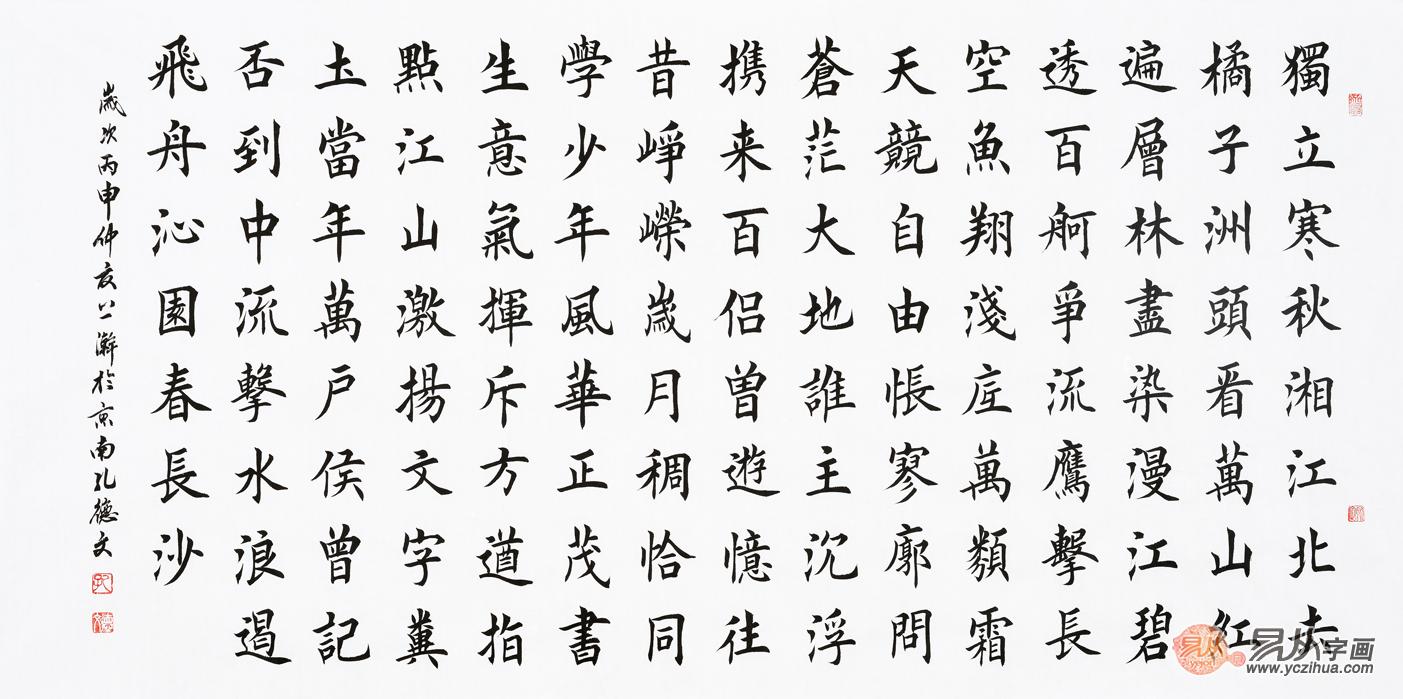 獨立寒秋湘江北去
橘子洲頭看萬山紅
遍層林盡染漫江碧
透百舸爭流鷹擊長
空魚翔淺底萬類霜
天競自由悵寥廓問
蒼茫大地誰主沉浮
携来百侣曾遊憶往
昔崢嶸歲月稠恰同
學少年風華正茂書
生意氣揮斥方遒指
點江山激揚文字糞
土當年萬戶侯曾記
否到中流擊水浪遏
飛舟沁園春長沙
歲次丙申仲夏上澣於京南孔德文
易从字画
www.yczihua.com